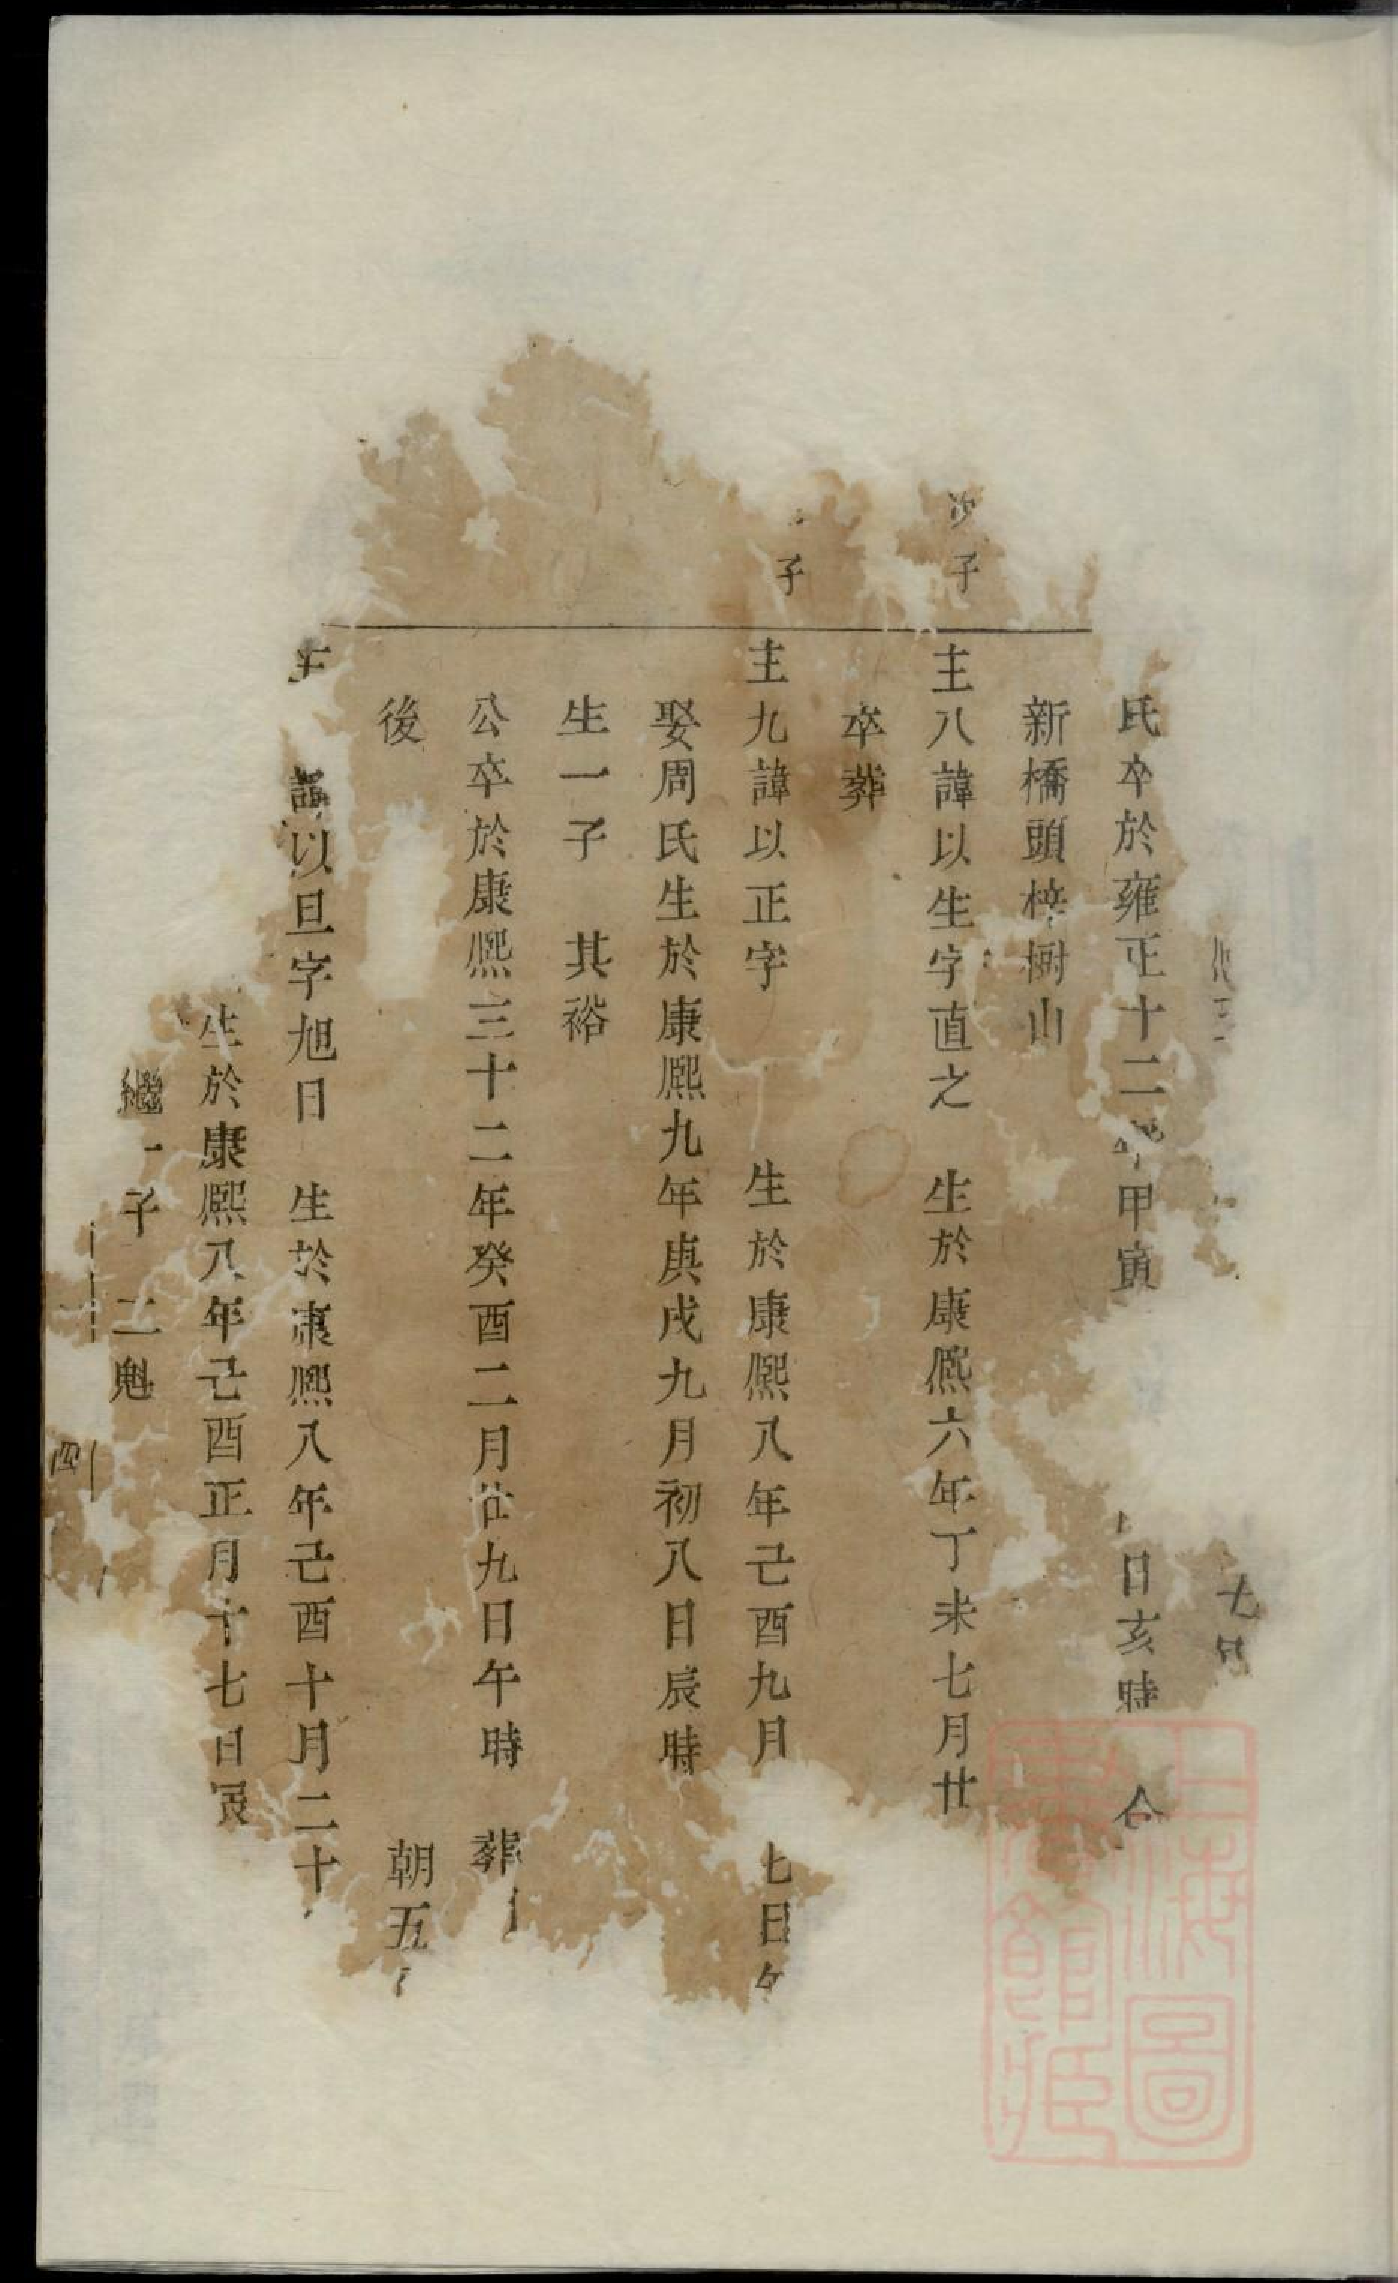 七
氏卒於雍正十二年甲寅 日亥時 合
新橋頭梓樹山
次子
主八諱以生字直之 生於康熙六年丁未七月廿
卒葬
子
主九諱以正字 生於康熙八年己酉九月 七日午
娶周氏生於康熙九年庚戌九月初八日辰時
生一子 其裕
公卒於康熙三十二年癸酉二月廿九日午時 葬
後 朝五
主 諱以旦字旭日 生於康熙八年己酉十月二十
生於康熙八年己酉正月十七日寅
繼一子 二魁
四
上海圖
書館藏